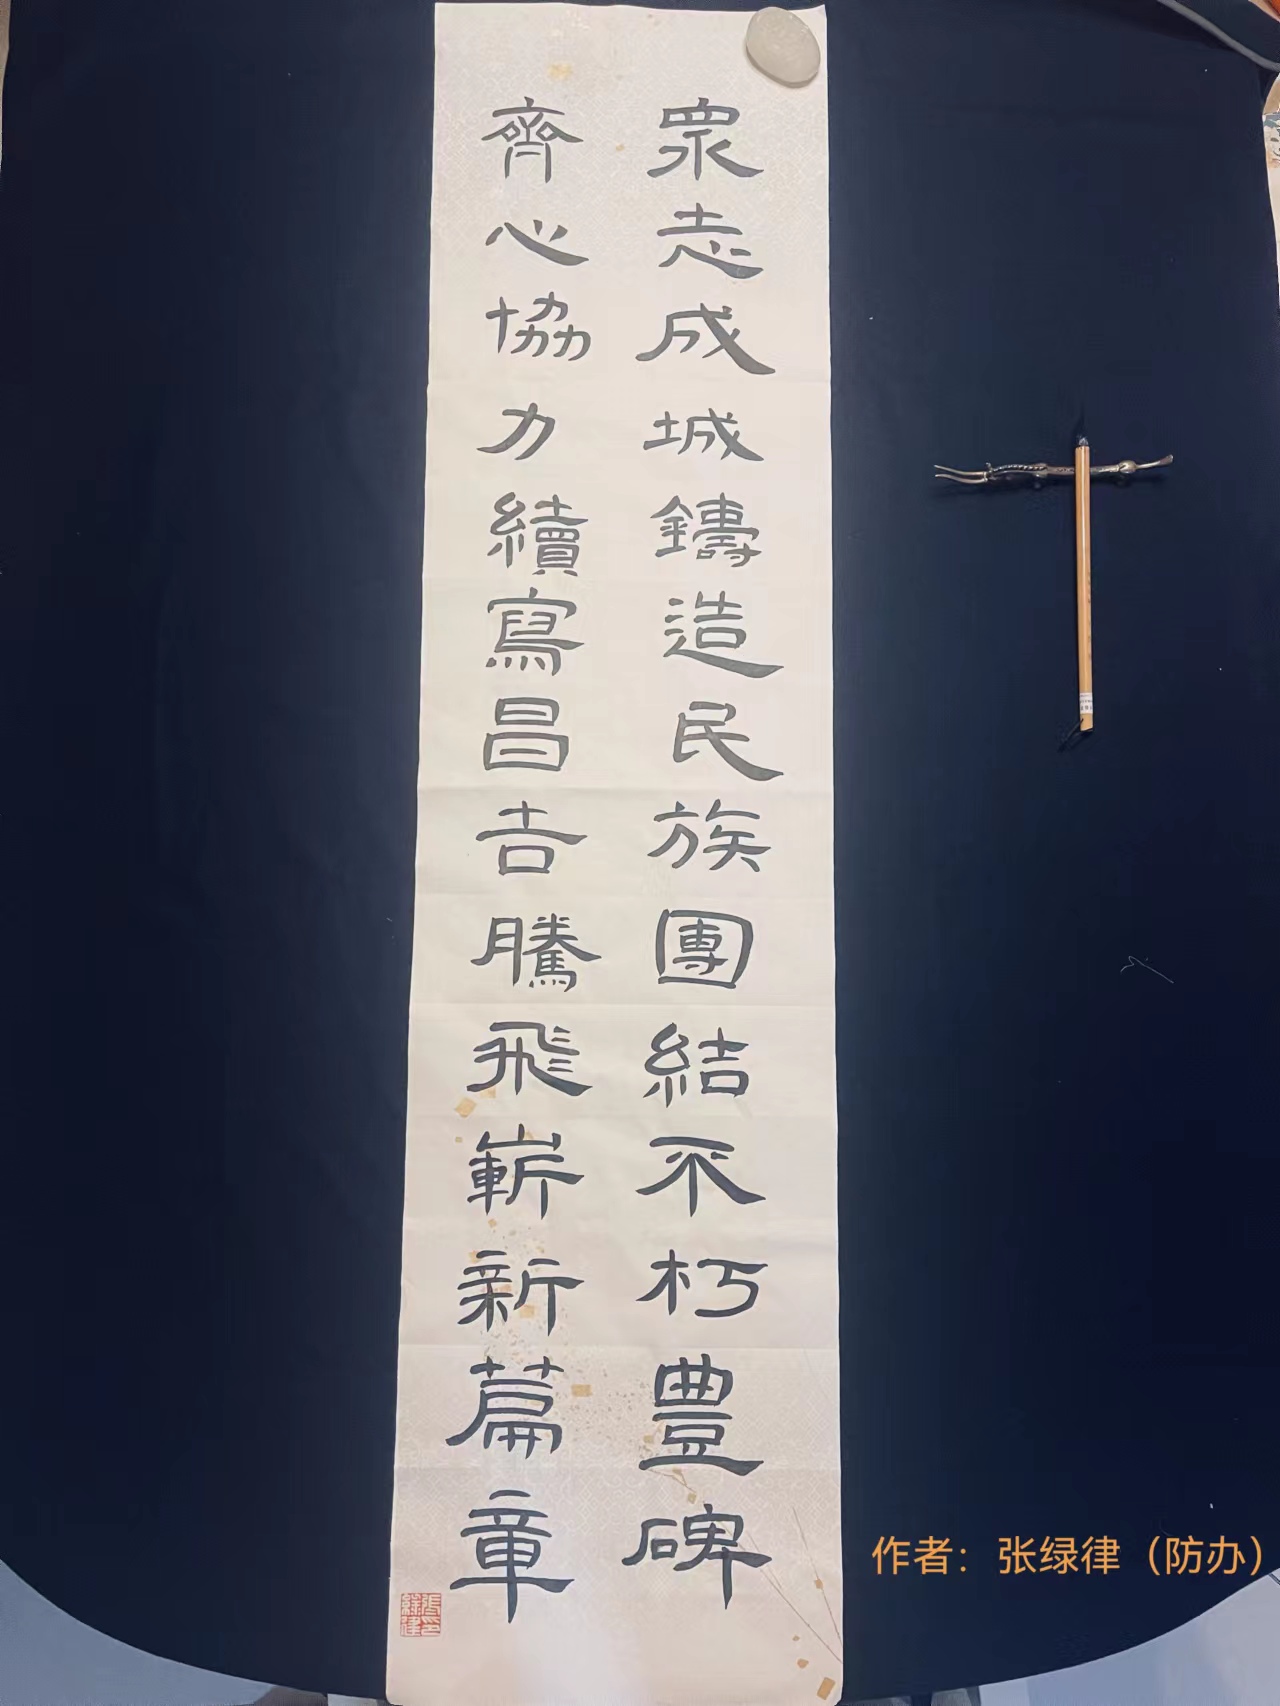 眾志成城鑄造民族團結不朽豊碑
齊心協力續寫昌吉騰飛嶄新篇章
作者：张绿律（防办）